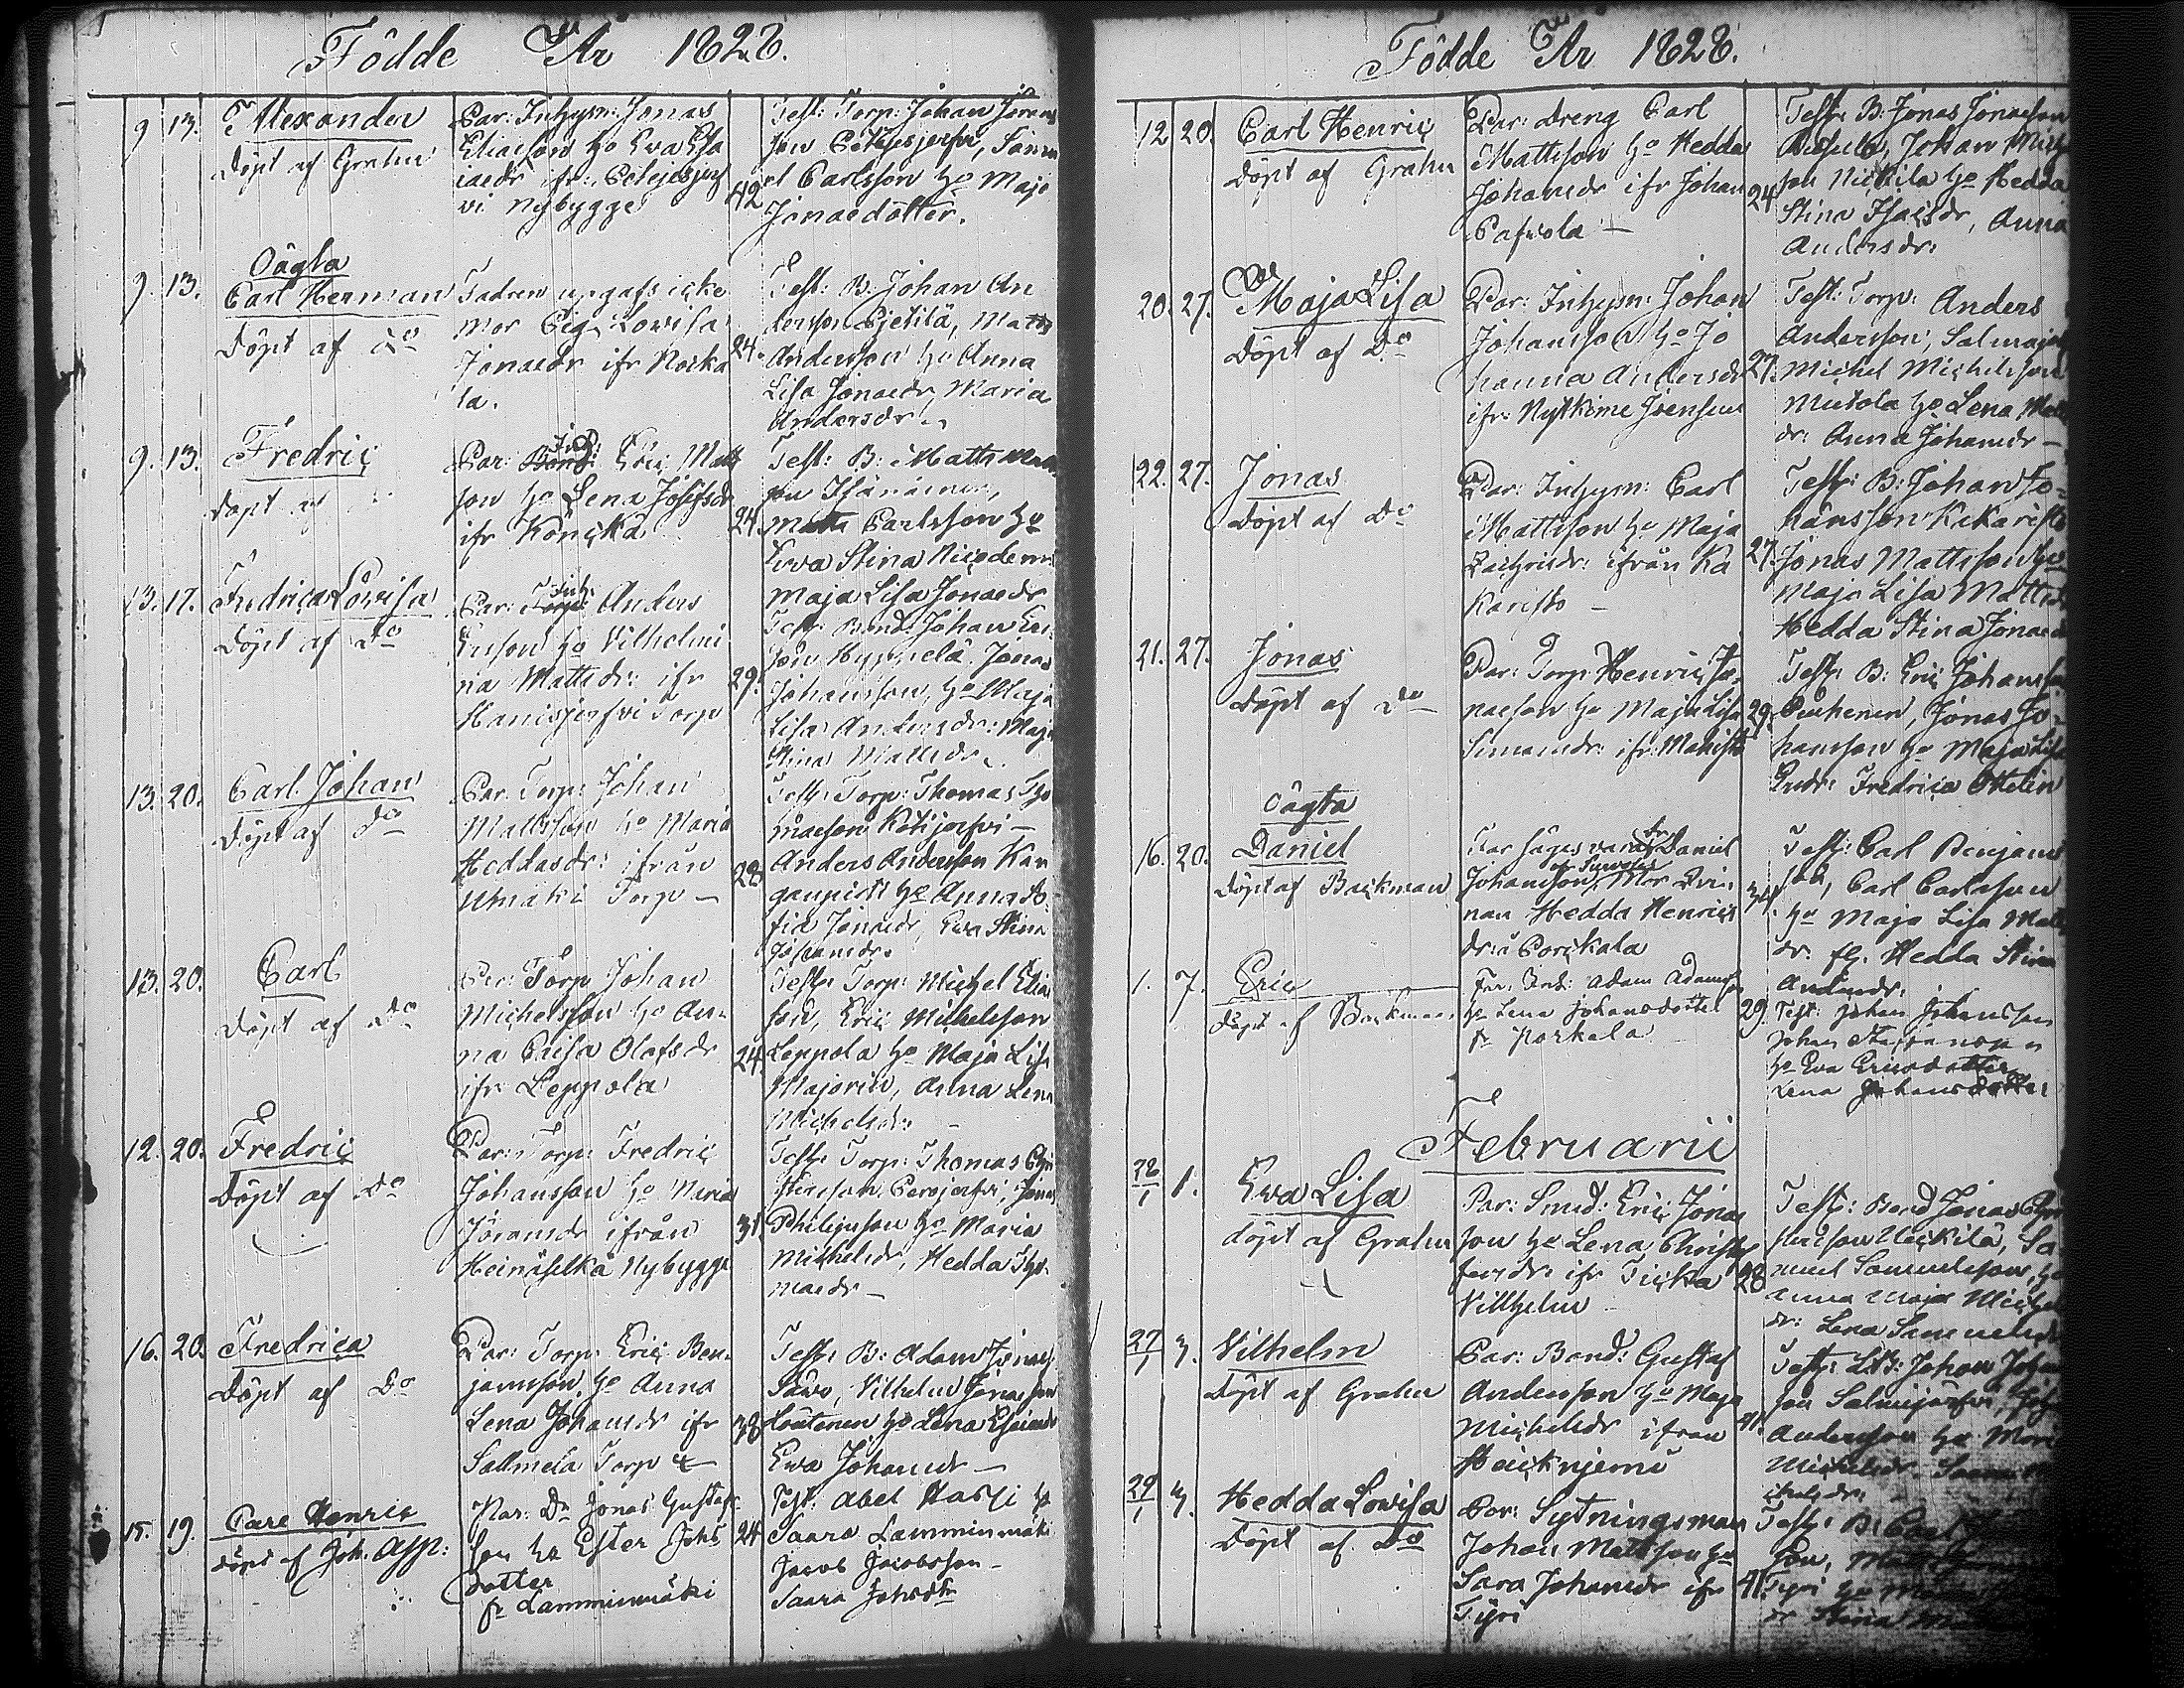 Födde År 1828.
9 13. Alexander
Döpt af Grahn
Par: Inhysm: Jonas
Eliaeson ho Eva Esa
iaedr ifr: Petejesjerf
vi Nybygge
42
Test: Torp: Johan Jörans
son Petejesjerfvi, Samu
el Carlsson ho Maja
Jonaedotter.
9. 13. Oägta
Carl Herman
Döpt af Do
Fadren upgafs icke
Mor Pig. Lovisa
Jonaedr ifr Korka
la.
24.
Test: B: Johan An
dersson Pjetilä, Matts
Andersson ho Anna
Lisa Jonaedr, Maria
Andersdr.
9. 13. Fredric
Döpt af
Par: Inh: Eric Matts
son ho Lena Josefsdr
ifr Konicka
24.
Test: B: Matts
son
Matts Carlsson ho
Eva Stina Nicodemi
Maja Lisa Jonaedr
13. 17. Fredrica Lovisa
Döpt af Do
Par: Inh: Anders
Ericson ho Vilhelmi
na Mattsdr: ifr
Hanisjerfvi Torp
29.
Test: Bond: Johan Eric
son Hyppelä, Jonas
Johansson, ho Maja
Lisa Andersdr: Maja
Stina Mattsdr.
13. 20. Carl Johan
Döpt af Do
Par: Torp: Johan
Mattsson ho Maria
Heddasdr: ifrån
Torp
28
Test: Torp: Thomas Tho
maeson Kotijerfvi
Anders Andersson Kan
ganpiste ho Anna So
fia Jonaedr, Eva Stina
Johansdr.
13. 20. Carl
Döpt af Do
Par: Torp Johan
Michelsson ho An
na Caisa Olofsdr
ifr Leppola
24.
Test: Torp: Michel Elia
son, Eric Michelsson
Leppola ho Maja Lisa
Majorin, Anna Lena
Michelsdr:
12. 20. Fredric
Döpt af Do
Par: Torp: Fredric
Johansson ho Maria
Jöransdr ifrån
Heinäselkä Nybygge
31.
Test: Torp: Thomas Chri
sterson Parojerfvi, Jonas
Philipuson ho Maria
Michelsdr, Hedda Tho
maedr
16. 20. Fredrica
Döpt af Do
Par: Torp: Eric Ben
jamsson, ho Anna
Lena Johansdr ifr
Sallmela Torp
38
Test: B: Adam Jonaes
Savo, Vilhelm Jonaeson
Loutinen ho Lena Esaiaedr
Eva Johansdr
15. 19. Carl Henric
Döpt af Joh. Asp:
Par: Dr Jonas Gustafs
son ho Ester Johs
dotter
fr Lamminmäki
24
Test: Abel Harsi ho
Saara Lamminmäki
Jacob Jacobsson
Saara Johsdr
Födde År 1828.
12 20. Carl Henric
Döpt af Grahn
Par: Dreng Carl
Mattsson ho Hedda
Johansdr ifr Johan
Pafvola
24
Test: B: Jonas Jonaeson
Johan Mich
son Nickila ho Hedda
Stina Isacsdr, Anna
Andersdr:
20. 27. Maja Lisa
Döpt af Do
Par: Inhysm: Johan
Johansson ho Jo
hanna Andersdr
ifr: Nytkime
27.
Test: Torp: Anders
Andersson, Salmajerf
Michel Michelsson
Mutola ho Lena Matts
dr: Anna Johansdr
22. 27. Jonas
Döpt af Do
Par: Inhysm: Carl
Mattsson ho Maja
Zachrisdr: ifrån Ka
karisto
27.
Test: B: Johan Jo
hansson Kakaristo
Jonas Mattsson ho
Maja Lisa Mattsdr
Hedda Stina Jonaedr
21. 27. Jonas
Döpt af Do
Par: Torp: Henric Jo
naeson ho Maja Lisa
Simonsdr: ifr: Mahisto
29.
Test: B: Eric Johansson
Puuhenen, Jonas Jo
hansson ho Maja Lisa
Ericdr: Fredrica Ottelin
16. 20. Oägta
Daniel
Döpt af Backman
Far säges vara dr. Daniel
Johansson Mor Qvi
nan Hedda Henrics
dr: å Porckala
34
Test: Carl Benjams
son, Carl Carlsson
ho Maja Lisa Matts
dr. fl. Hedda Stina
Andersdr.
1. 7. Eric
Döpt af Backman
Far: Ind: Adam Adamsson
ho Lena Johansdotter
fr Porkala
29.
Test: Johan Johansson
Johan
ho Eva Ericsdotter
Lena Johansdotter
Februarii
28/1 1. Eva Lisa
döpt af Grahn
Par: Smed: Eric Jonae
son ho Lena Christof
fersdr: ifr Ticka
Vilhelm
28
Test: Bond Jonas Chri
sterson Nickilä, Sa
muel Samuelsson, ho
Anna Maja Michels
dr: Lena Samuelsdr
27/1 3. Vilhelm
Döpt af Grahn
Par: Bond: Gustaf
Andersson ho Maja
Michelsdr ifrån
Haicknjemi
41.
Test: LB: Johan Johans
son Salmijärfvi, Joh
Andersson ho Mari
Michelsdr.
29/1 3. Hedda Lovisa
Döpt af Do
Par: Sytningsman
Johan Mattsson ho
Sara Johansdr ifr
Tyri
41.
Test: B: Carl
son,
Tyri ho
dr Stina